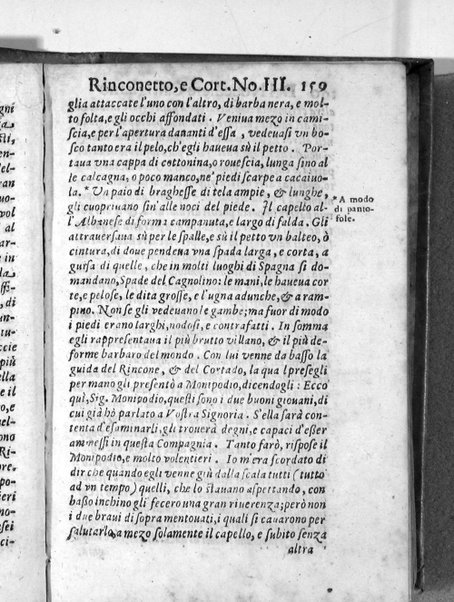 Rinconetto, e Cort. No. III. 159
glia attaccate l'uno con l'altro, di barba nera, e mol-
to folta, e gli occhi affondati. Veniua mezo in cami-
scia, e per l'apertura dananti d'essa, vedeuasi vn bo-
sco tanto era il pelo, ch'egli haueua sù il petto. Por-
taua vna cappa di cettonina, o rouescia, lunga sino al
le calcagna, o poco manco, ne' piedi scarpe a cacaiuo-
la. * Va paio di braghesse di tela ampie, & lunghe,
gli cuopriuano sin' alle noci del piede. Il capello al-
l'Albanese di forma campanuta, e largo di falda. Gli
attrauersaua sù per le spalle, e sù il petto vn balteo, ò
cintura, di doue pendeua vna spada larga, e corta, a
guisa di quelle, che in molti luoghi di Spagna si do-
mandano, Spade del Cagnolino: le mani, le haueua cor
te, e pelose, le dita grosse, e l'ugna adunche, & a ram-
pino. Non se gli vedeuano le gambe; ma fuor di modo
i piedi erano larghi, nodosi, e contrafatti. In somma
egli rappresentaua il più brutto villano, & il più de-
forme barbaro del mondo. Con lui venne da basso la
guida del Rincone, & del Cortado, la qual presegli
per mano gli presentò a Monipodio, dicendogli: Ecco
quì, Sig. Monipodio, questi sono i due buoni giouani, di
cui già hò parlato a Vostra Signoria. S'ella sarà con-
tenta d'esaminarli, gli trouerà degni, e capaci d'esser
ammessi in questa Compagnia. Tanto farò, rispose il
Monipodio, e molto volentieri. Io m'era scordato di
dir che quando egli venne giù dalla scala tutti (tutto
ad vn tempo) quelli, che lo stauano aspettando, con
basso inchino gli fecero vna gran riuerenza; però non
i due braui di sopra mentouati, i quali si cauarono per
salutarlo, a mezo solamente il capello, e subito senza
altra
* A modo
di panto-
fole.